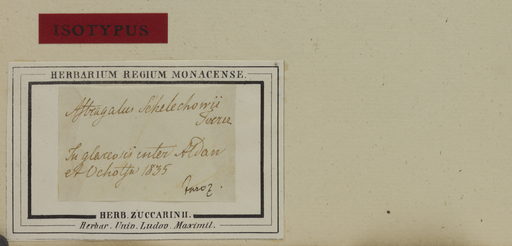 ISOTYPUS
HERBARIUM REGIUM MONACENSE.
Astragalus Schelechowii
Turcz
In glareosis inter Aldan
et Ochotza 1835
HERB. ZUCCARINII.
Herbar. Univ. Ludov. Maximil.